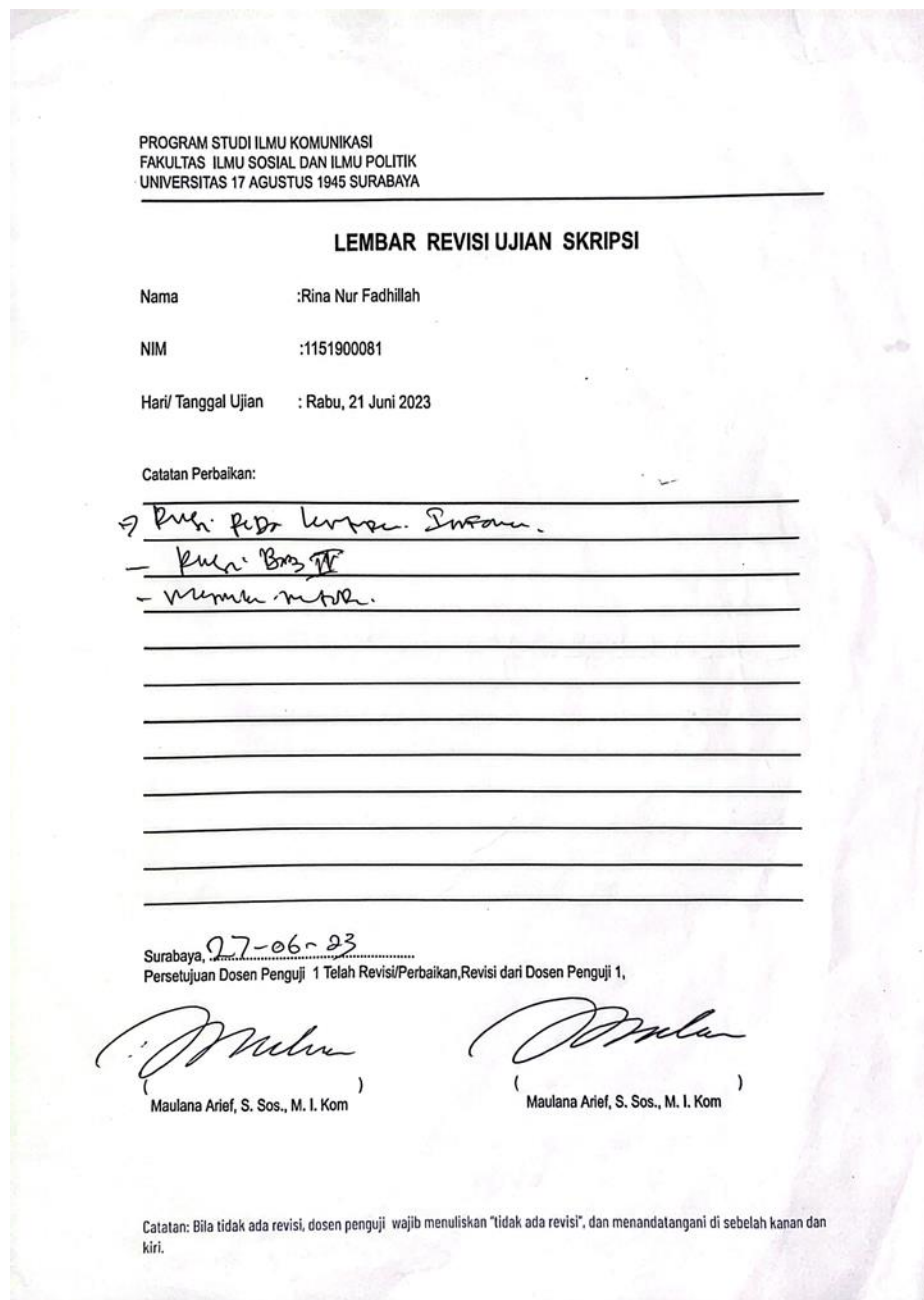 PROGRAM STUDI ILMU KOMUNIKASI
FAKULTAS ILMU SOSIAL DAN ILMU POLITIK
UNIVERSITAS 17 AGUSTUS 1945 SURABAYA
LEMBAR REVISI UJIAN SKRIPSI
Nama :Rina Nur Fadhillah
NIM :1151900081
Hari/ Tanggal Ujian : Rabu, 21 Juni 2023
Catatan Perbaikan:
- Bab IV
Surabaya, 27-06-23
Persetujuan Dosen Penguji 1 Telah Revisi/Perbaikan,Revisi dari Dosen Penguji 1,
( ) ( )
Maulana Arief, S. Sos., M. I. Kom Maulana Arief, S. Sos., M. I. Kom
Catatan: Bila tidak ada revisi, dosen penguji wajib menuliskan "tidak ada revisi", dan menandatangani di sebelah kanan dan
kiri.